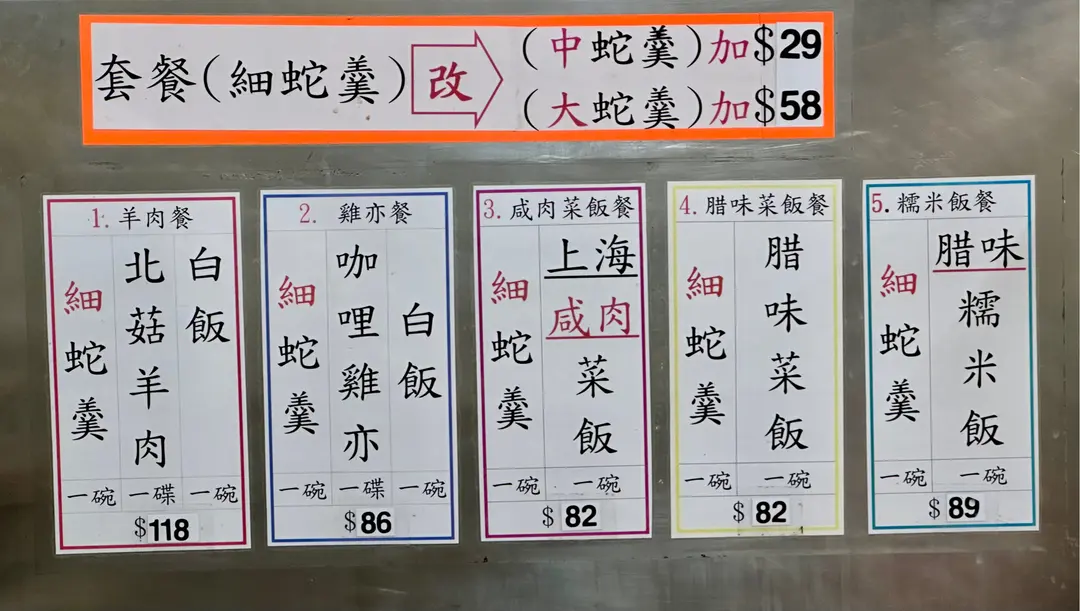 套餐(細蛇羹)改
(中蛇羹)加$29
(大蛇羹)加$58
1. 羊肉餐
細蛇羹
北菇羊肉
白飯
一碗 一碟 一碗
$118
2. 雞亦餐
細蛇羹
咖哩雞亦
白飯
一碗 一碟 一碗
$86
3. 咸肉菜飯餐
細蛇羹
上海
咸肉
菜飯
一碗 一碗
$82
4. 腊味菜飯餐
細蛇羹
腊味菜飯
一碗 一碗
$82
5. 糯米飯餐
細蛇羹
腊味
糯米飯
一碗 一碗
$89